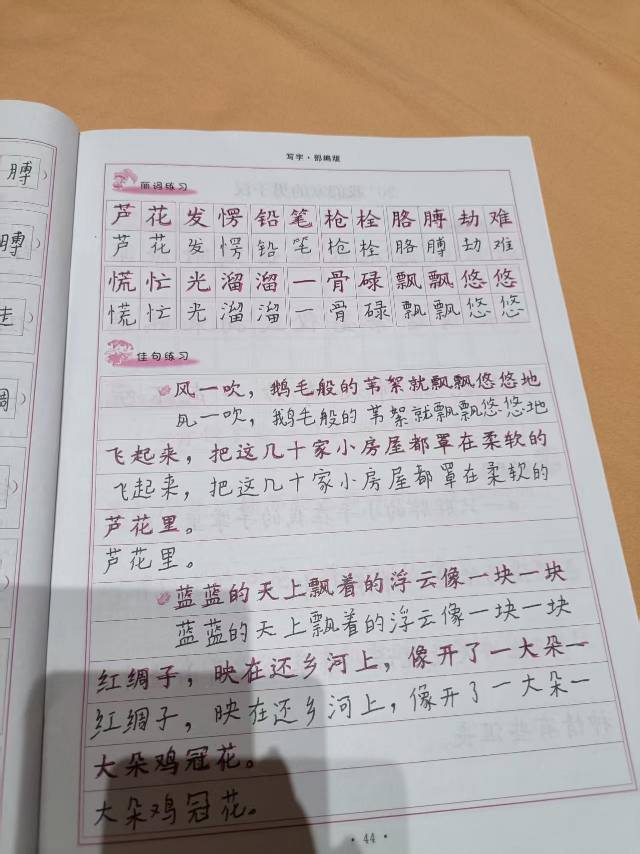 写字·部编版
丽词练习
芦花 发愣 铅笔 枪栓 胳膊 劫难
芦花 发愣 铅笔 枪栓 胳膊 劫难
慌忙 光溜溜 一骨碌 飘飘悠悠
慌忙 光溜溜 一骨碌 飘飘悠悠
佳句练习
风一吹，鹅毛般的苇絮就飘飘悠悠地
风一吹，鹅毛般的苇絮就飘飘悠悠地
飞起来，把这几十家小房屋都罩在柔软的
飞起来，把这几十家小房屋都罩在柔软的
芦花里。
芦花里。
蓝蓝的天上飘着的浮云像一块一块
蓝蓝的天上飘着的浮云像一块一块
红绸子，映在还乡河上，像开了一大朵一
红绸子，映在还乡河上，像开了一大朵一
大朵鸡冠花。
大朵鸡冠花。
·44·
膊
膊